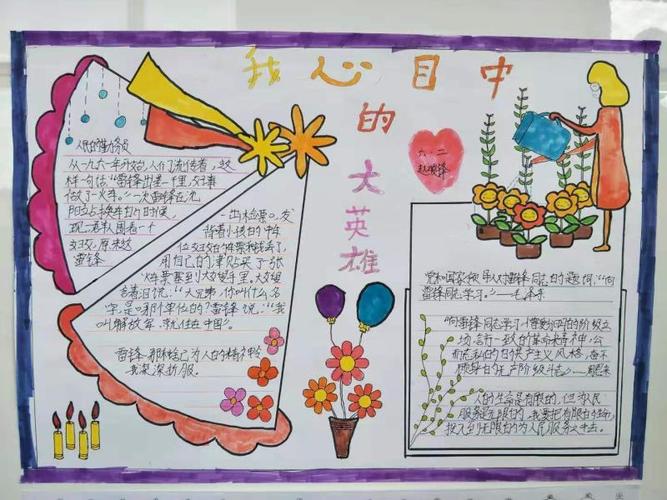 我心目中
的
大
英
雄
六·二
人民的勤务员
从一九六一年开始,人们流传着,这
样一句话:"雷锋出差一千里,好事
做了一火车。"一次雷锋在沈
阳站换车的时候,
现一群人围着一个
妇女,原来这
雷锋
一出检票口,发
背着小孩的中年
位妇女的车票和钱丢了,
用自己的津贴买了一张
火车票塞到大嫂手里,大嫂
含着泪说:"大兄弟,你叫什么名
字,是哪个单位的?"雷锋说:"我
叫解放军,就住在中国。"
雷锋那种舍己为人的精神令
我深深折服。
党和国家领导人对雷锋同志的题词:"向
雷锋同志学习。"——毛泽东
"向雷锋同志学习
场,言行一致的革命精神,公
而忘私的共产主义风格,奋不
顾身的无产阶级斗志。"
人的生命是有限的,但为人民
服务是无限的,我要把有限的生命
投入到无限的为人民服务之中去。